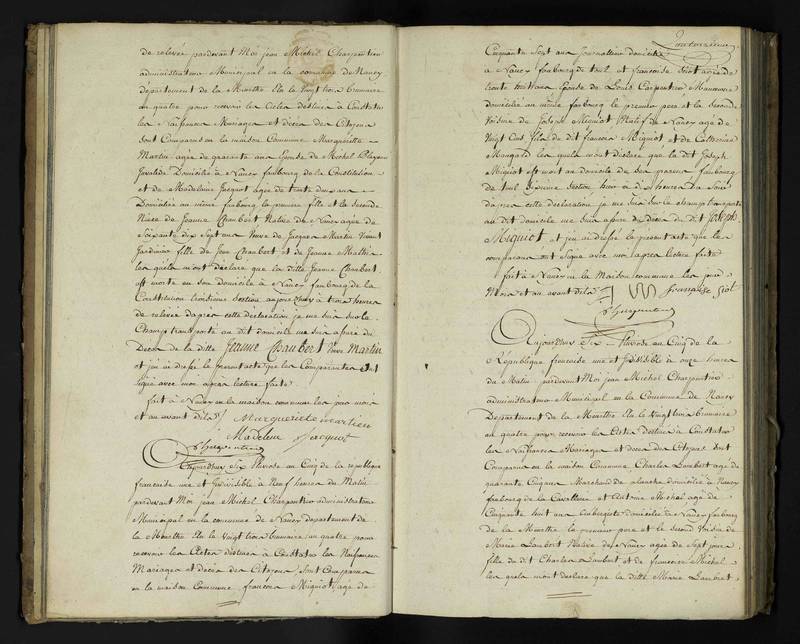 de relevée pardevant Moi jean Michel Charpentier
administrateur Municipal en la commune de Nancy
département de la Meurthe Elu le Vingt trois brumaire
an quatre pour recevoir les Actes destinés à Constater
les Naissances Mariages et décès des Citoyens
sont Comparus en la maison Commune Margueritte
Martin agée de quarante ans Epouse de Michel
Domicilié à Nancy faubourg de la Constitution
et de Madelaine Jacquot agée de trente deux ans
Domiciliée au même faubourg la premiere fille et la seconde
Niéce de Jeanne Chaubert Native de Nancy agée de
Soixante dix Sept ans Veuve de Jacques Martin Vivant
Jardinier fille de Jean Chaubert et de Jeanne
lesquels m'ont déclaré que la ditte Jeanne Chaubert
est morte en son domicile à Nancy faubourg de la
Constitution troisieme Section aujourdhuy à trois heures
de relevée d'après cette déclaration je me suis sur le
Champ transporté au dit domicile me suis assuré du
Décès de la ditte Jeanne Chaubert Veuve Martin
et j'en ai dressé le présent acte que les Comparantes ont
signé avec moi après lecture faite
fait à Nancy en la maison commune les jour mois
et an avant dits
Margueritte martin
Madeleine Jacquot
Charpentier
Aujourdhuy Six Nivose an Cinq de la republique
française une et indivisible à Neuf heures du Matin
pardevant Moi jean Michel Charpentier administrateur
Municipal en la commune de Nancy departement de
la Meurthe Elu le Vingt trois brumaire an quatre pour
recevoir les Actes destinés à Constater les Naissances
Mariages et décès des Citoyens, sont Comparus
en la maison Commune francois Miquot agé de
Cinquante Sept ans journallier domicilié
à Nancy faubourg de toul et françoise Siot agée de
trente huit ans Epouse de Louis Carpentier Manœuvre
domiciliée au même faubourg le premier pere et la seconde
Voisine de Joseph Miquot Natif de Nancy agé de
Vingt Cinq fils du dit francois Miquot et de Catherine
lesquels m'ont déclaré que le dit Joseph
Miquot est mort au domicile de son pere au faubourg
de toul Septieme Section hier à dix heures du Soir
d'après cette déclaration je me suis sur le champ transporté
au dit domicile me suis assuré du décès du dit Joseph
Miquot et j'en ai dressé le présent acte que les
comparans ont signé avec moi après lecture faite
fait à Nancy en la Maison commune les jour
Mois et an avant dits
françoise Siot
Charpentier
Aujourdhuy Six Nivose an Cinq de la
République française une et indivisible à onze heures
du Matin pardevant Moi jean Michel Charpentier
administrateur Municipal en la Commune de Nancy
Département de la Meurthe Elu le Vingt trois brumaire
an quatre pour recevoir les Actes destinés à Constater
les Naissances Mariages et décès des Citoyens sont
Comparus en la maison Commune Charles Lambert agé de
quarante Cinq ans Marchand de planche domicilié à Nancy
faubourg de la Constitution et Antoine Michel agé de
Cinquante huit ans Aubergiste domicilié à Nancy faubourg
de la Meurthe le premier pere et le second Voisin de
Marie Lambert Native de Nancy agée de Sept jours
fille du dit Charles Lambert et de françoise Michel
lesquels m'ont déclaré que la ditte Marie Lambert